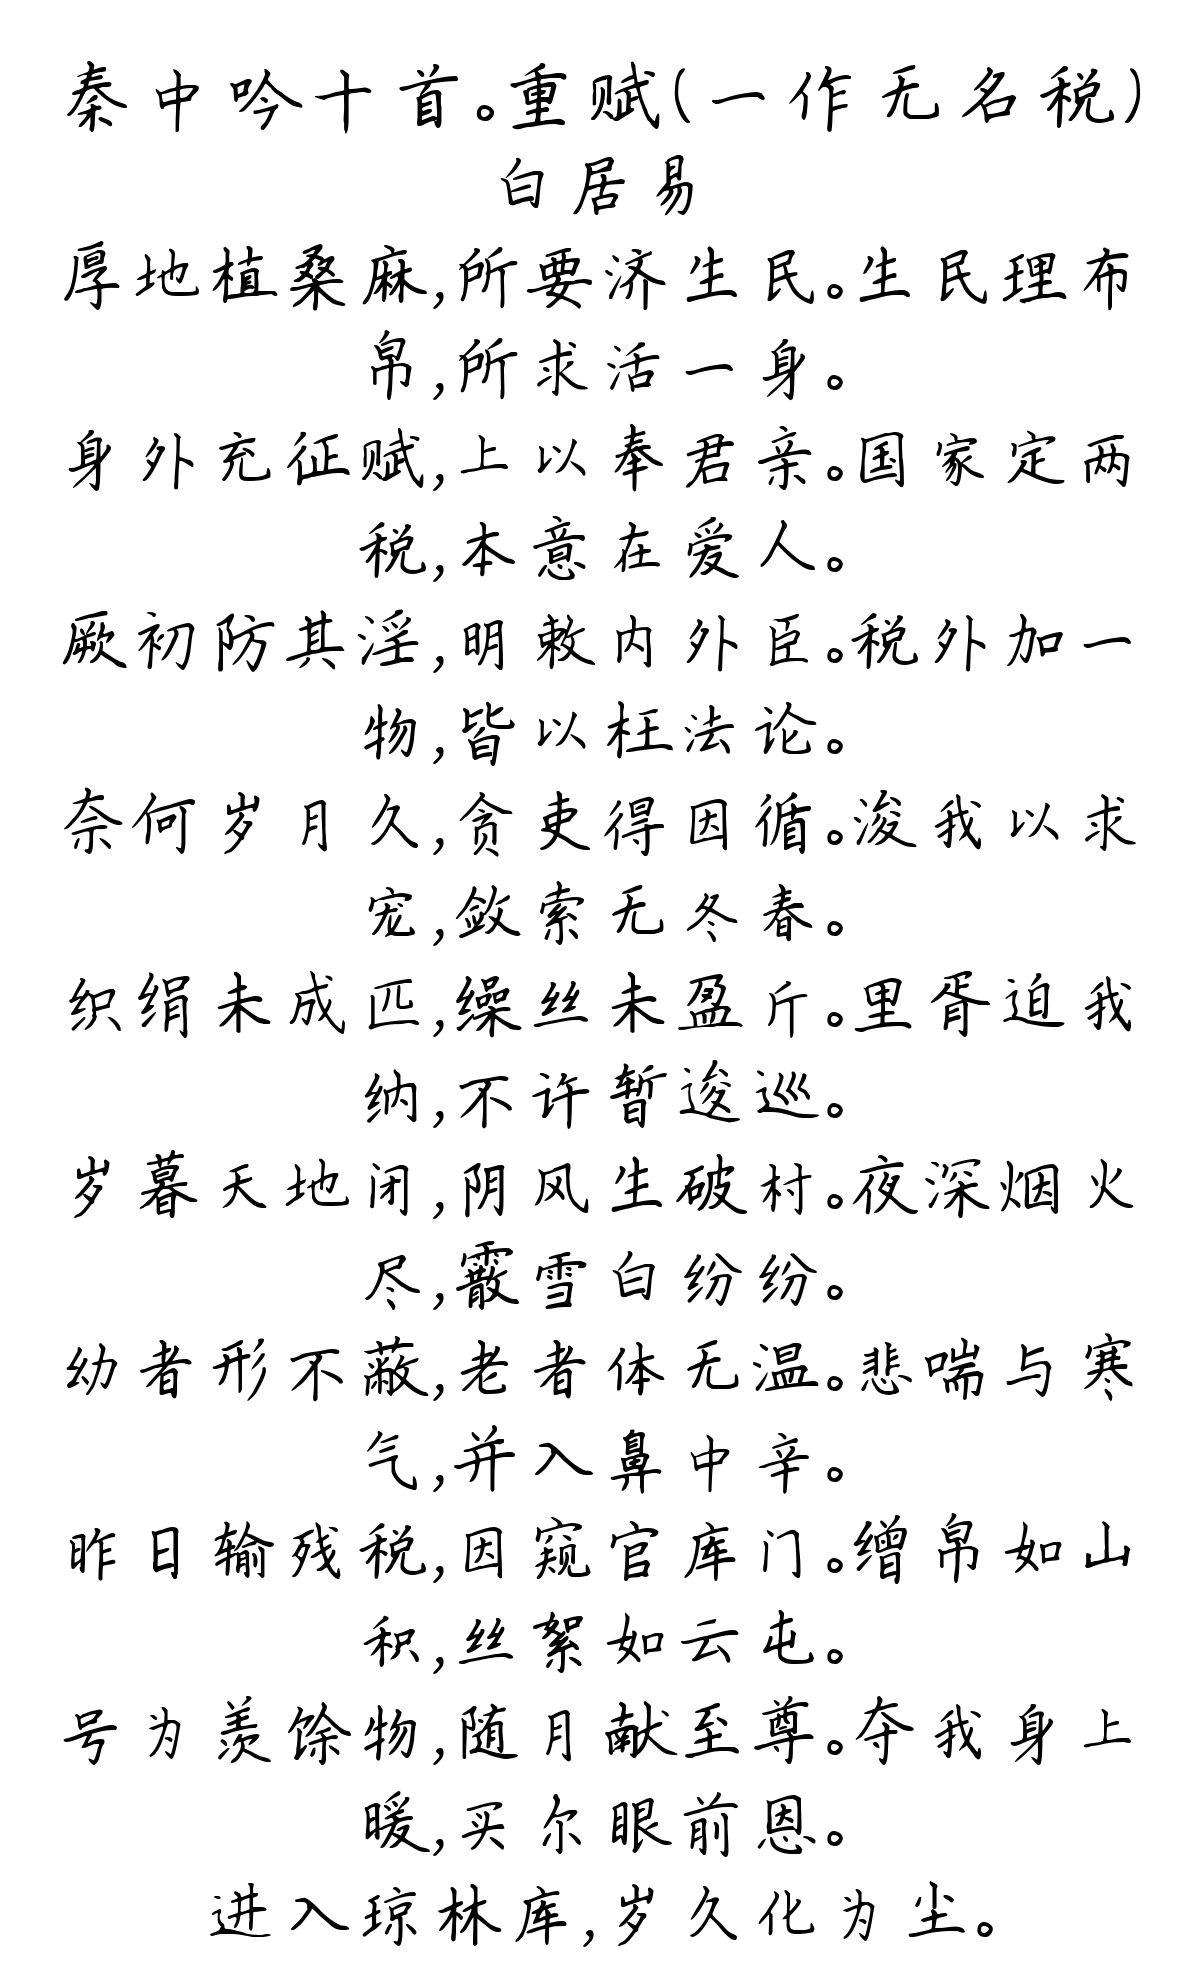 秦中吟十首。重赋(一作无名税)
白居易
厚地植桑麻,所要济生民。生民理布
帛,所求活一身。
身外充征赋,上以奉君亲。国家定两
税,本意在爱人。
厥初防其淫,明敕内外臣。税外加一
物,皆以枉法论。
奈何岁月久,贪吏得因循。浚我以求
宠,敛索无冬春。
织绢未成匹,缲丝未盈斤。里胥迫我
纳,不许暂逡巡。
岁暮天地闭,阴风生破村。夜深烟火
尽,霰雪白纷纷。
幼者形不蔽,老者体无温。悲喘与寒
气,并入鼻中辛。
昨日输残税,因窥官库门。缯帛如山
积,丝絮如云屯。
号为羡馀物,随月献至尊。夺我身上
暖,买尔眼前恩。
进入琼林库,岁久化为尘。